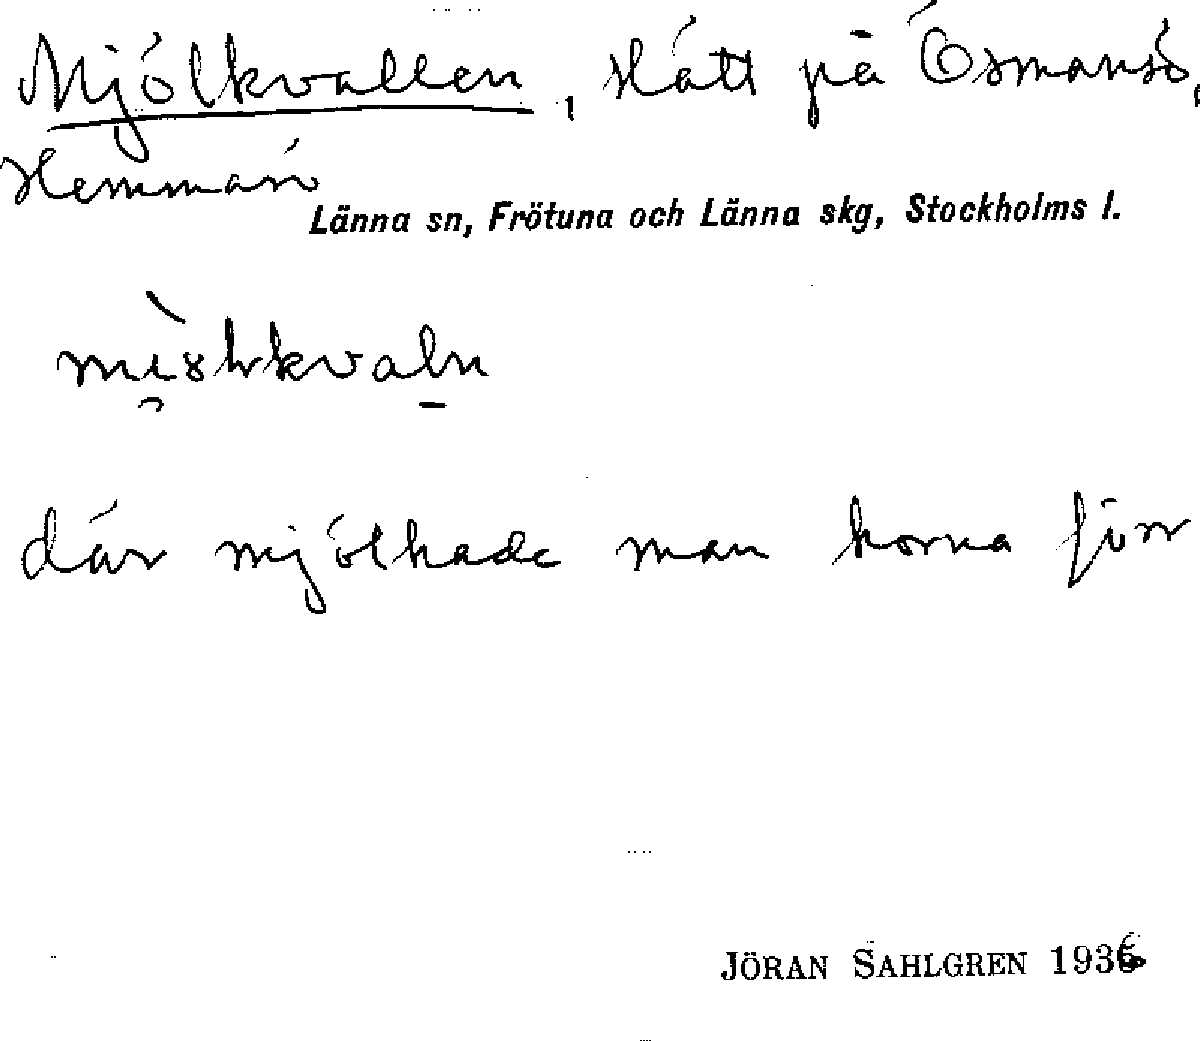 Mjölkvallen, slätt på Ösmansö,
Hemmarö
Länna sn, Frötuna och Länna skg, Stockholms l.
där mjölkade man korna förr
JÖRAN SAHLGREN 1936